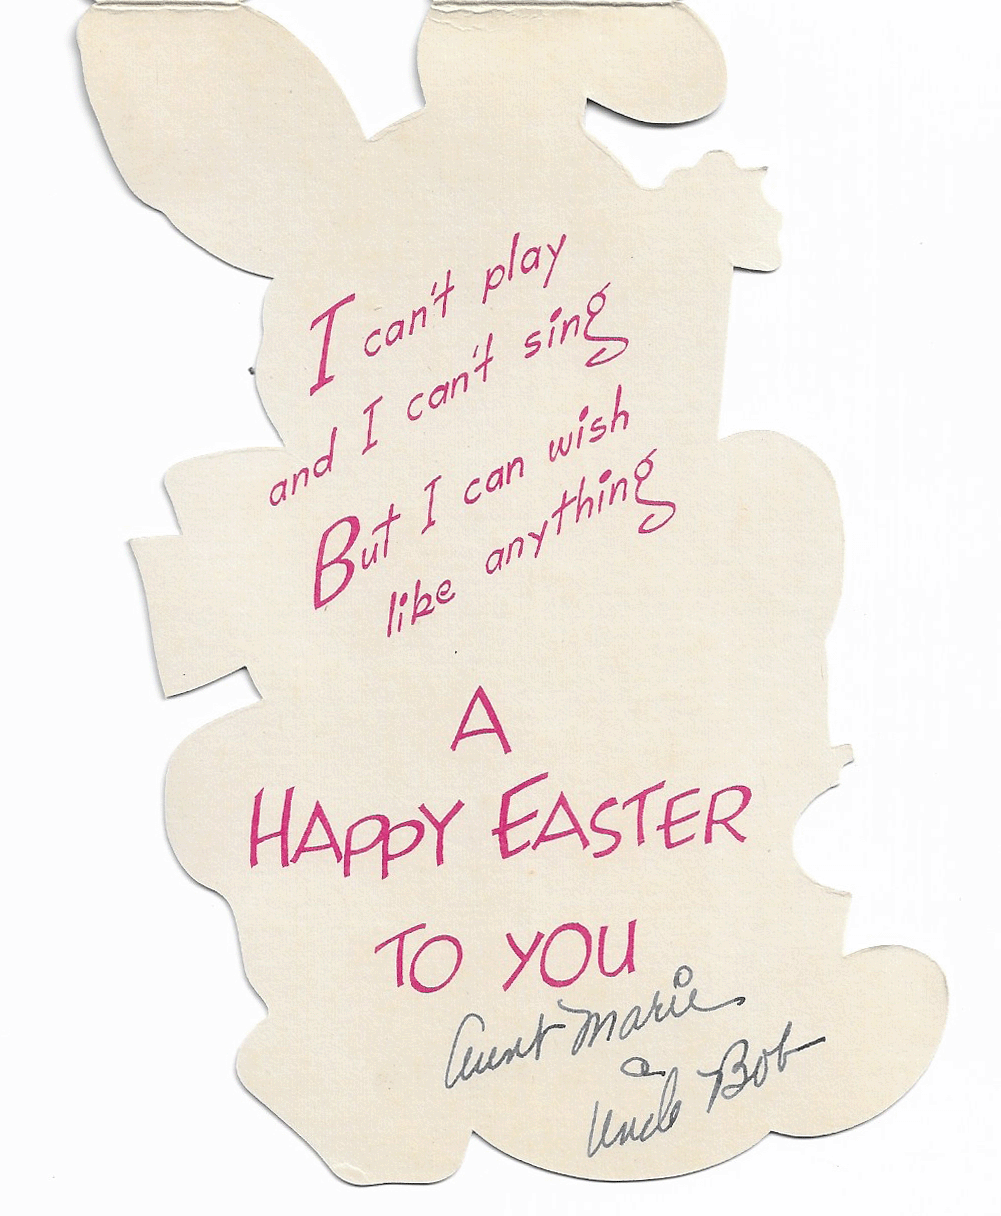 I can't play
and I can't sing
But I can wish
like anything
A
HAPPY EASTER
TO YOU
Aunt Marie
&
Uncle Bob